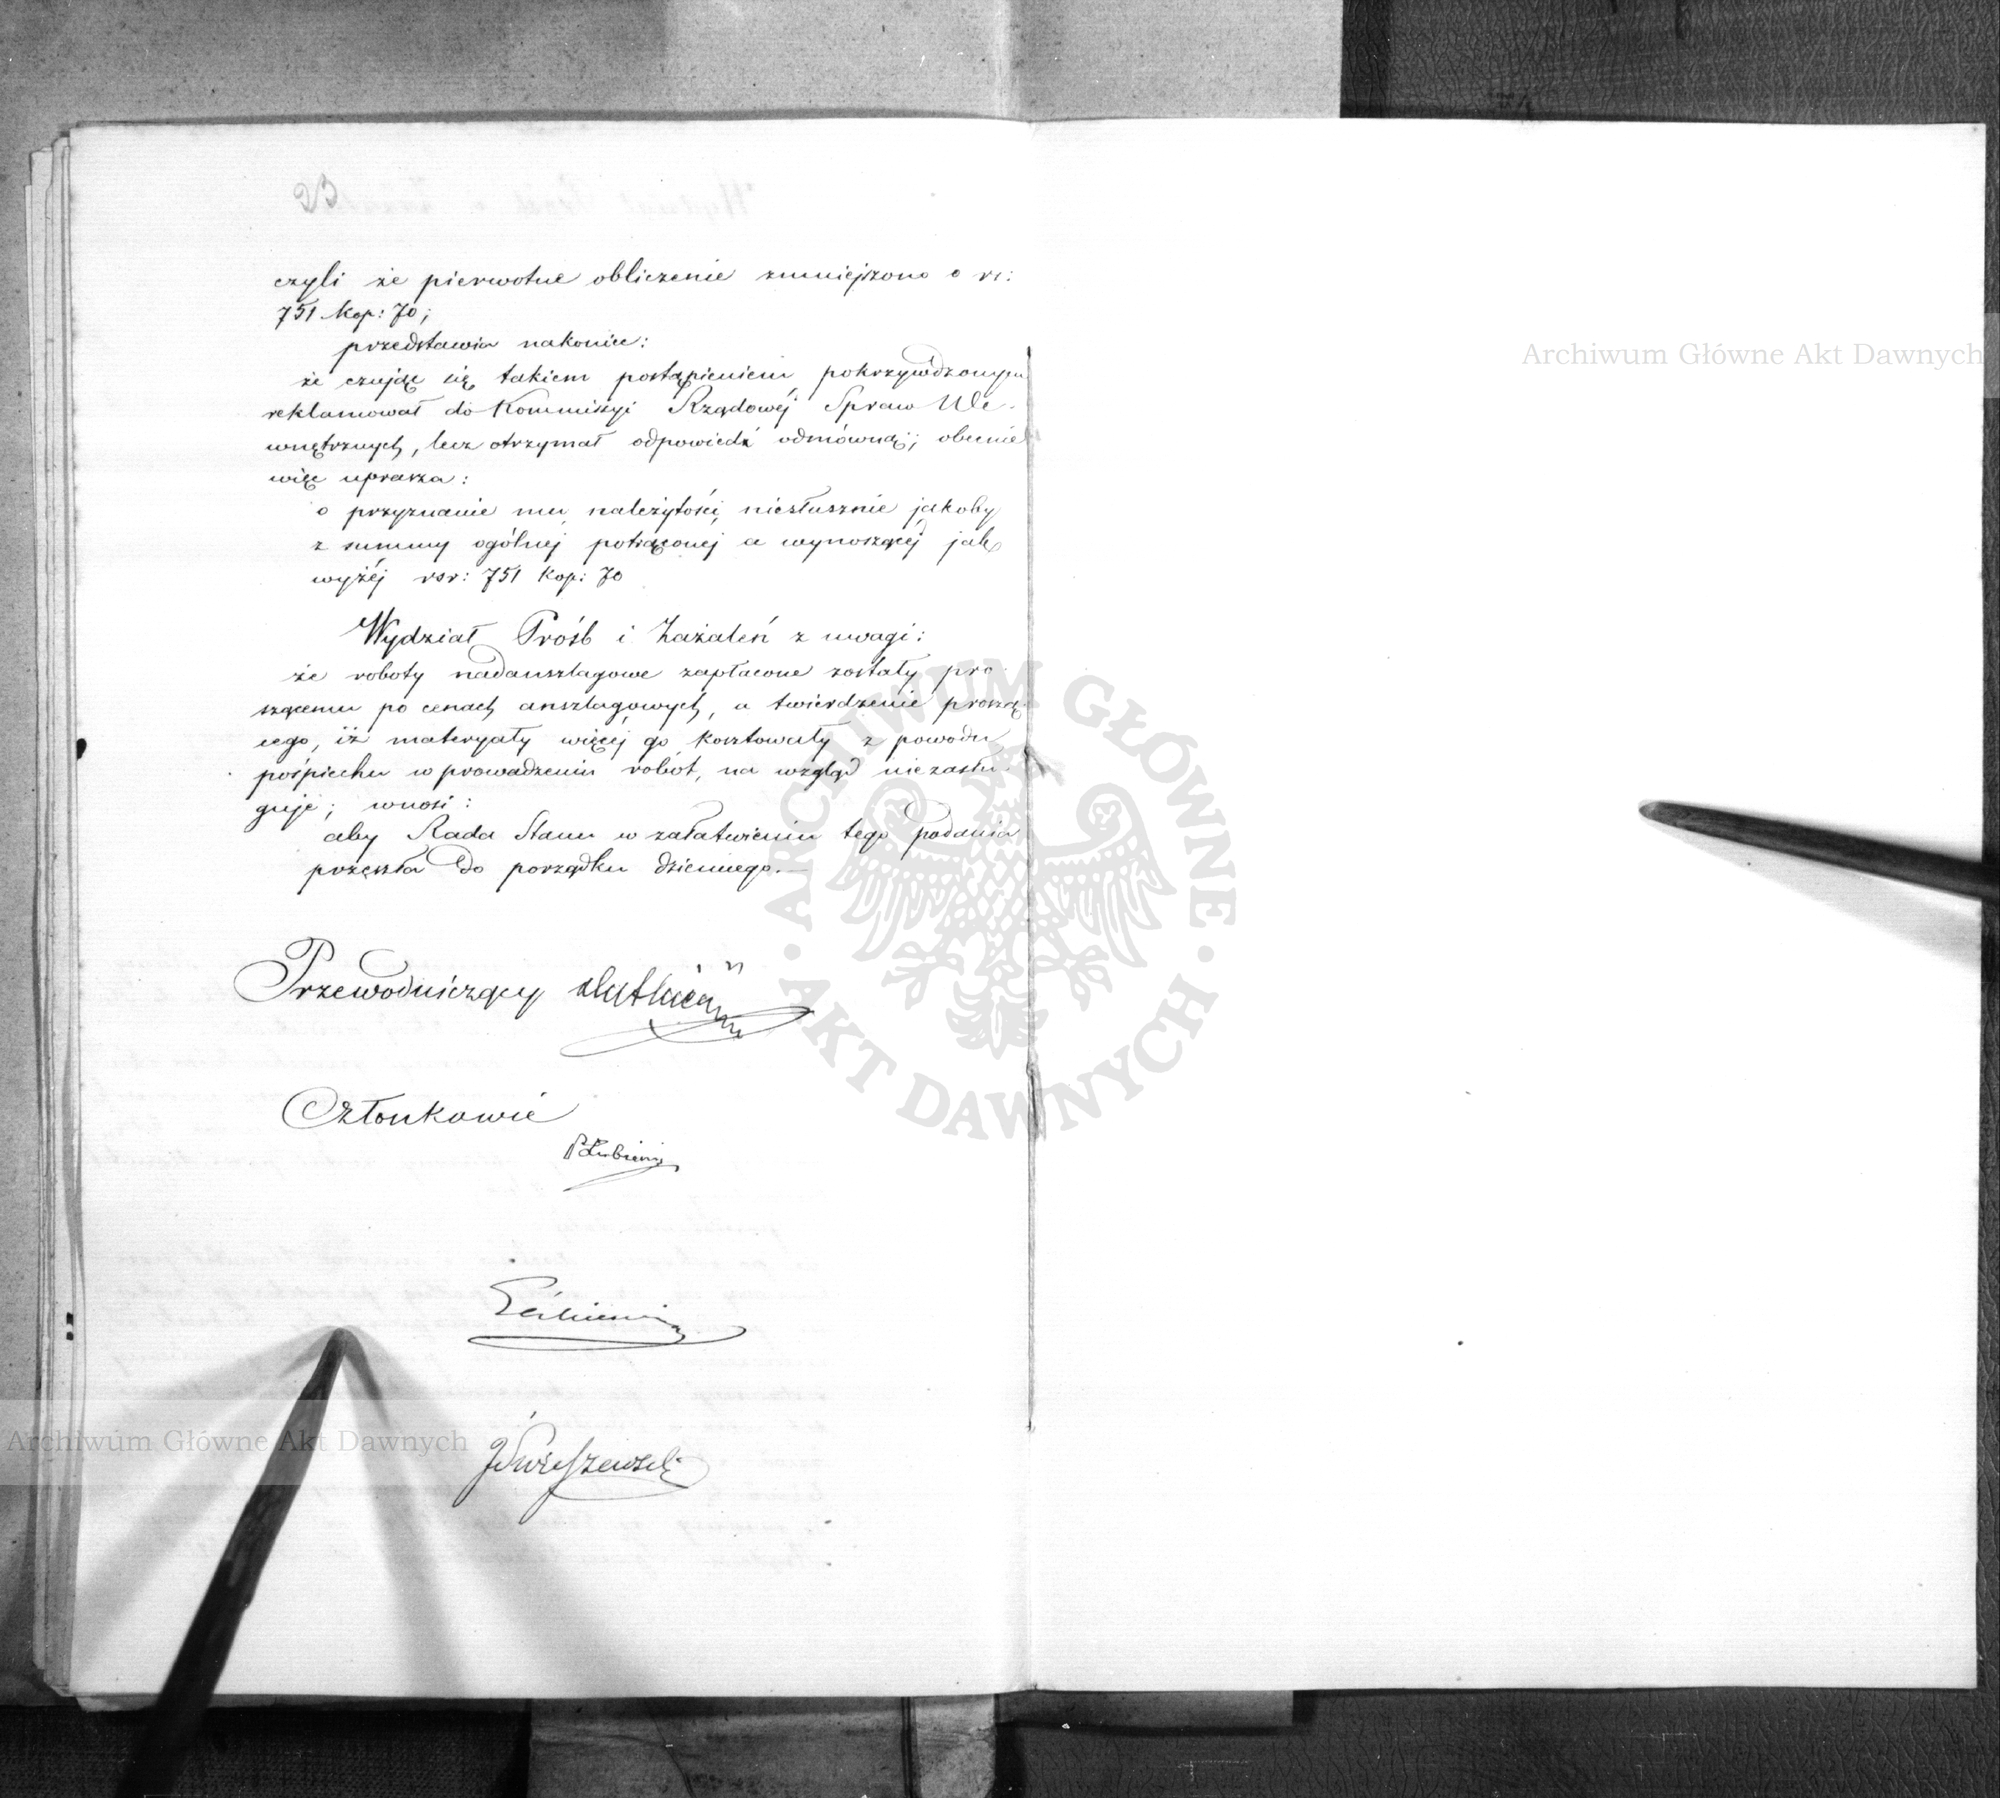 23
czyli że pierwotne obliczenie zmniejszono o rs:
751 kop: 70;
przedstawia nakoniec:
że czując się takiem postąpieniem pokrzywdzonym
reklamował do Kommissyi Rządowéj Spraw We-
wnętrznych, lecz otrzymał odpowiedź odmówną; obecnie
więc uprasza:
o przyznanie mu należytości niesłusznie jakoby
z summy ogólnéj potrąconéj a wynoszącéj jak
wyżéj rsr: 751 kop: 70
Wydział Próśb i Zażaleń z uwagi:
że roboty nadanszlagowe zapłacone zostały pro-
szącemu po cenach anszlagowych, a twierdzenie proszą-
cego, iż materyały więcéj go kosztowały z powodu
pośpiechu w prowadzeniu robót, na wzgląd nie zasłu-
guje; wnosi:
aby Rada Stanu w załatwieniu tego podania
przeszła do porządku dziennego.—
Przewodniczący
Członkowie
PŁubieński
Archiwum Główne Akt Dawnych
Archiwum Główne Akt Dawnych
ARCHIWUM GŁÓWNE
AKT DAWNYCH